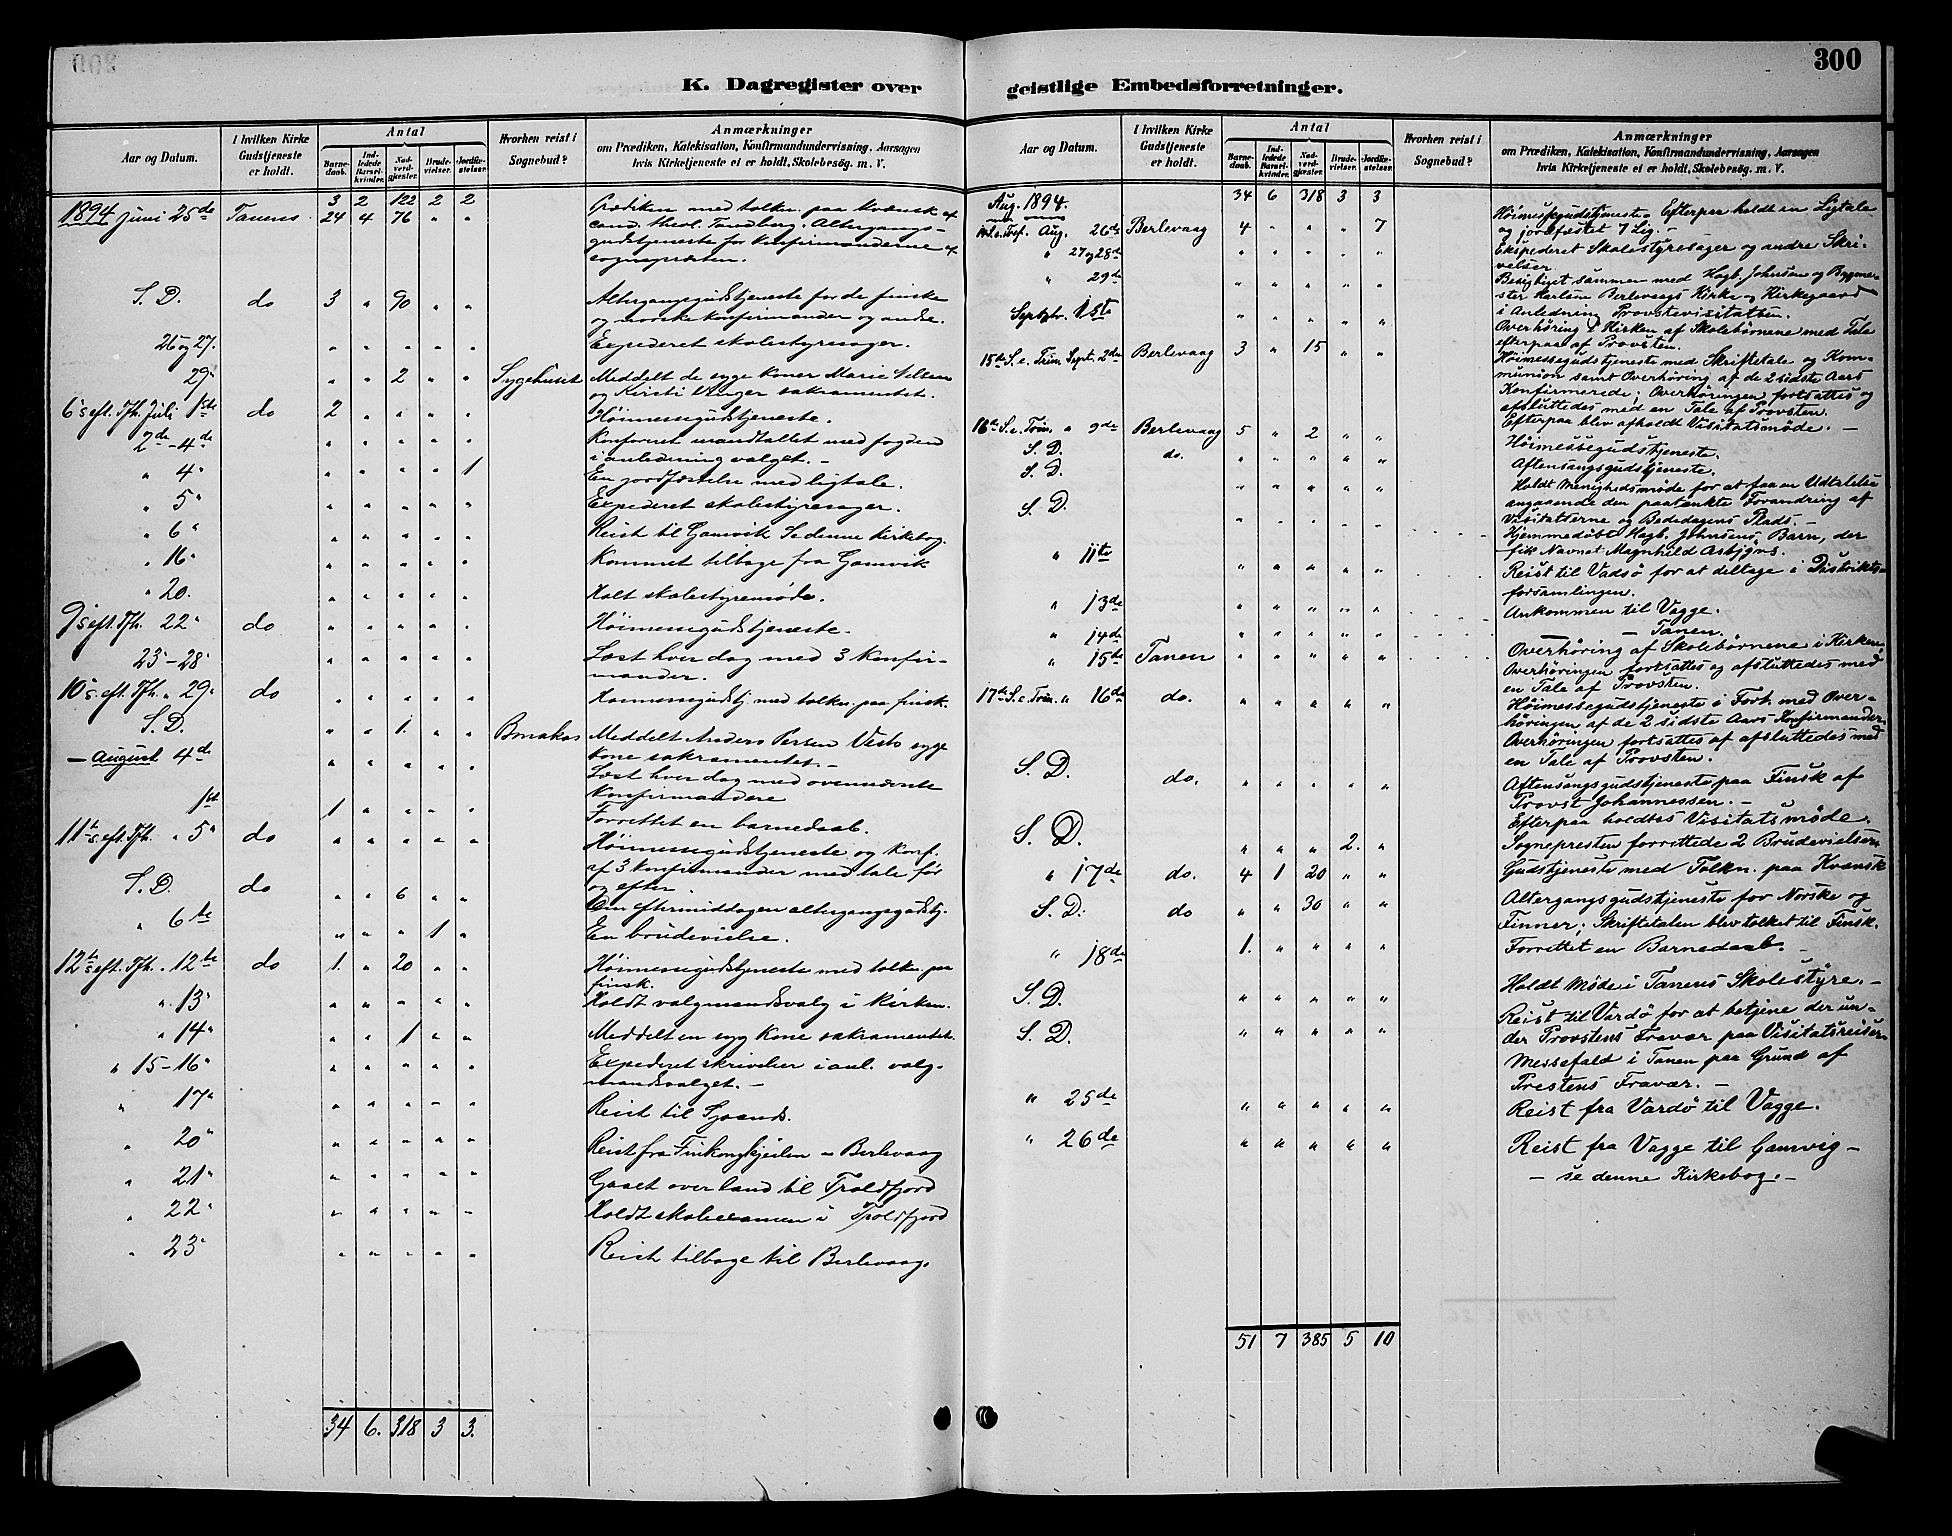 300
K. Dagregister over
geistlige Embedsforretninger.
Aar og Datum.
I hvilken Kirke Gudstjeneste er holdt.
Antal
Barnedaab.
Indledede Barselkvinder.
Nadverdgjester.
Brudevielser.
Jordfæstelser.
Hvorhen reist i Sognebud?
Anmærkninger
om Prædiken, Katekisation, Konfirmandundervisning, Aarsagen
hvis Kirketjeneste ei er holdt, Skolebesøg. m. V.
3 2 122 2 2
1894 Juni 25de Tanens 24 4 76 " " Prædiken med tolken paa kvænsk af
cand. theol. Tandberg. Altergangs-
gudstjeneste for konfirmanderne af
sognepræsten.
S. D. do 3 " 90 " " Altergangsgudstjeneste for de finske
og norske konfirmander og andre.
26 og 27. " " " " " Expederet skolestyresager.
29" " " 2 " " Sygehuset Meddelt de syge koner Marie Nilsen
og Kirsti sakramentet.
6 s. eft. Tfh. Juli 1ste do 2 " " " " Høimessegudstjeneste.
2de-4de " " " " " Konforeret mandtallet med fogden
i anledning valget. -
" 4" " " " " 1 En jordfæstelse med ligtale.
" 5" " " " " " Expederet skolestyresager.
" 6" " " " " " Reist til Gamvik Se denne kirkebog.
" 16" " " " " " Kommet tilbage fra Gamvik
" 20. " " " " " Holt skolestyremøde.
9 s. eft. Tfh. 22" do " " " " " Høimessegudstjeneste.
23-28" " " " " " Læst hver dag med 3 konfir-
mander.
10 s. eft. Tfh. " 29" do " " " " " Høimessegudstj. med tolken. paa finsk.
S. D. " " 1. " " Bonakas Meddelt Anders Persen Vests syge
kone sakramentet. -
- August 4de " " " " " Læst hver dag med ovennævnte
konfirmandere
1st 1 " " " " Forrettet en barnedaab.
11te s. eft. Tfh. " 5" do " " " " " Høimessegudstjeneste og konf.
af 3 konfirmander med tale før
og efter.
S. D. do " " 6 " " Om eftermiddagen altergangsgudstj.
" 6te " " " 1 " En brudevielse.
12te s. eft. Tfh. " 12te do 1. " 20 " " Høimessegudstjeneste med tolken. paa
finsk.
" 13" " " " " " Holdt valgmandsvalg i kirken.
" 14" " " 1 " " Meddelt en syg kone sakramentet.
" 15-16" " " " " " Expederet skrivelser i anl. valg-
mandsvalget. -
" 17" " " " " " Reist til
" 20" " " " " " Reist fra Finkongkjeilen - Berlevaag
" 21" " " " " " Gaaet over land til Troldfjord
" 22" " " " " " Holdt skoleexamen i Troldfjord
" 23" " " " " " Reist tilbage til Berlevaag.
34 6. 318 3 3.
Aar og Datum.
I hvilken Kirke Gudstjeneste er holdt.
Antal
Barnedaab.
Indledede Barselkvinder.
Nadverdgjester.
Brudevielser.
Jordfæstelser.
Hvorhen reist i Sognebud?
Anmærkninger
om Prædiken, Katekisation, Konfirmandundervisning, Aarsagen
hvis Kirketjeneste ei er holdt, Skolebesøg. m. V.
Aug. 1894. 34 6 318 3 3
14. S. e. Tref. Aug. 26de Berlevaag 4 " " " 7 Høimessegudstjeneste. Efterpaa holdt en Ligtale
og jordfæstet 7 Lig. -
" 27 og 28de " " " " " Ekspederet Skolestyresager og andre Skri-
velser
" 29de " " " " " Besigtiget sammen med Hagb. Johnsen og Bygme-
ster Karlsen Berlevaags Kirke og Kirkegaard
i Anledning Provstevisitatsen.
Septbr. 1ste " " " " " Overhøring i Kirken af Skolebørnene med Tale
efterpaa af Provsten.
15de S. e. Trin. Sept. 2den Berlevaag 3 " 15 " " Høimessegudstjeneste med Skriftetale og Kom-
munion samt Overhøring af de 2 sidste Aars
Konfirmerede; Overhøringen fortsattes og
afsluttedes med en Tale af Provsten.
Efterpaa blev afholdt Visitatsmøde. -
16de S. e. Trin. " 9de Berlevaag 5 " 2 " " Høimessegudstjeneste.
S. D. do. " " " " " Aftensangsgudstjeneste.
S. D. " " " " " Holdt Menighedsmøde for at faa en Udtalelse
angaaende den paatænkte Forandring af
Visitatserne og Bededagens Plads. -
S. D. " " " " " Hjemmedøbt Hagb. Johnsens Barn, der
fik Navnet Magnhild Asbjørns.
" 11te " " " " " Reist til Vadsø for at deltage i Distrikts-
forsamlingen.
" 13de " " " " " Ankommen til Vagge.
" 14de " " " " " — - Tanen.
" 15de Tanen " " " " " Overhøring af Skolebørnene i Kirken,
Overhøringen fortsattes og afsluttedes med
en Tale af Provsten.
17de S. e. Trin. " 16de do. " " " " " Høimessegudstjeneste i Forb. med Over-
høringen af de 2 sidste Aars Konfirmander.
Overhøringen fortsattes af afsluttedes med
en Tale af Provsten.
S. D. do. " " " " " Aftensangsgudstjeneste paa Finsk af
Provst Johannessen. -
Efterpaa holdtes Visitatsmøde.
S. D. " " " 2. " Sognepresten forrettede 2 Brudevielser.
" 17de do. 4 1 20 " " Gudstjeneste med Tolkn. paa Kvænsk
S. D. do " " 30 " " Altergangsgudstjeneste for Norske og
Finner; Skriftetalen blev tolket til Finsk.
" 18de 1. " " " " Forrettet en Barnedaab. -
S. D. " " " " " Holdt Møde i Tanens Skolestyre. -
S. D. " " " " " Reist til Vardø for at betjene der un-
der Provstens Fravær paa Visitatsreiser.
Messefald i Tanen paa Grund af
Prestens Fravær. -
" 25de " " " " " Reist fra Vardø til Vagge.
" 26de " " " " " Reist fra Vagge til Gamvig -
- se denne Kirkebog. -
51 7 385 5 10